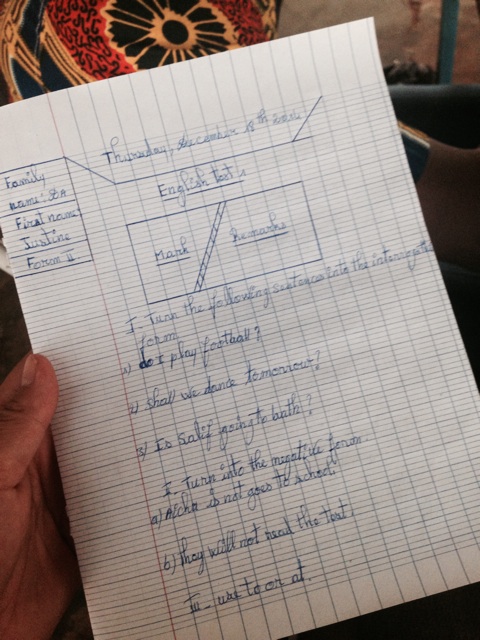 Thursday, december 18th 2014
Family
name: BA
First name:
Justine
Form II
English test
Mark
Remarks
I. Turn the following sentences into the interrogative
form
1) do I play football?
2) shall we dance tomorrow?
3) Is Salif going to bath?
I. Turn into the negative form.
a) Aicha is not goes to school
b) they will not read the text.
III. use to or at.